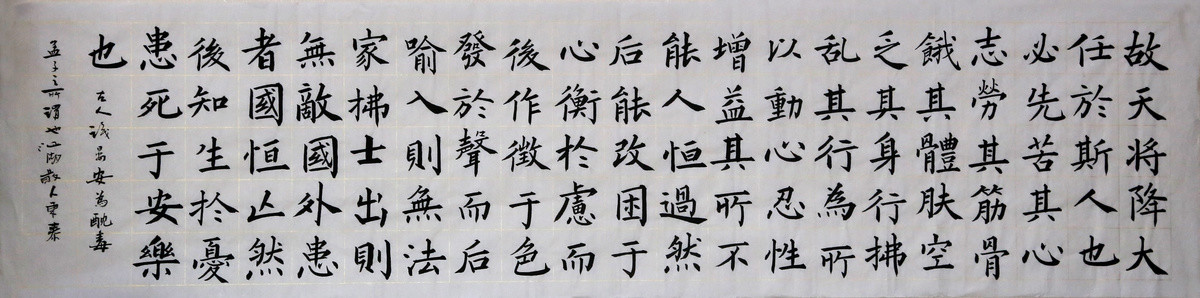 故天将降大
任於斯人也
必先苦其心
志勞其筋骨
餓其體肤空
乏其身行拂
乱其行為所
以動心忍性
增益其所不
能人恒過然
后能改困于
心衡於慮而
後作徵于色
發於聲而后
喻入則無法
家拂士出則
無敵國外患
者國恒亡然
後知生於憂
患死于安樂
也
古人誡晏安為酖毒
孟子之所謂也